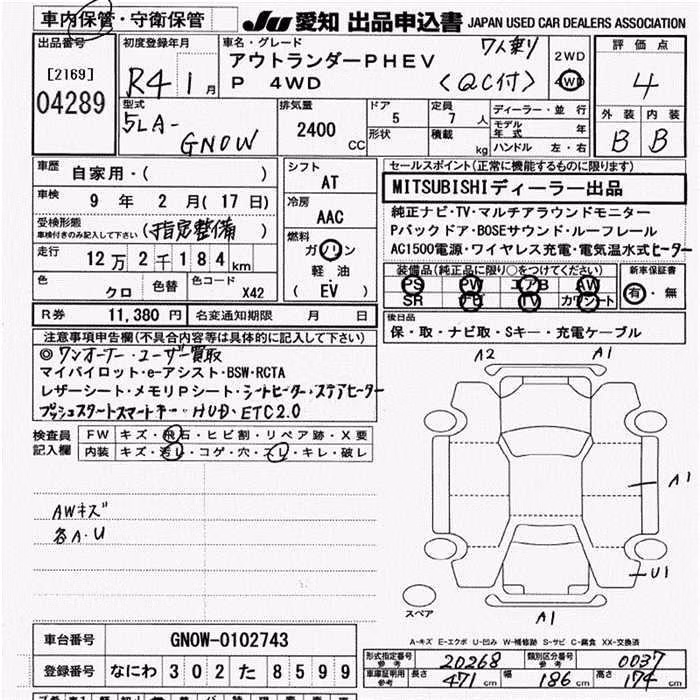 車内保管・守衛保管
JU 愛知 出品申込書 JAPAN USED CAR DEALERS ASSOCIATION
出品番号
[2169]
04289
初度登録年月
R4 1月
車名・グレード
アウトランダーPHEV 7人乗り
P 4WD (QC付)
2WD
4WD
評価点
4
外装 内装
B B
型式
5LA-
GN0W
排気量
2400
CC
ドア
5
形状
定員
7人
積載
kg
ディーラー・並行
モデル年式 年
ハンドル 左・右
車歴
自家用・( )
車検
9年 2月(17日)
受検形態
車検付きのみ記入して下さい
(指定整備)
走行
12万2千184km
色
クロ
色替
色コード
X42
シフト
AT
冷房
AAC
燃料
ガソリン
軽油
(EV)
R券 11,380円
名変通知期限 月 日
セールスポイント(正常に機能するものに限ります)
MITSUBISHIディーラー出品
純正ナビ・TV・マルチアラウンドモニター
Pバックドア・BOSEサウンド・ルーフレール
AC1500電源・ワイヤレス充電・電気温水式ヒーター
装備品(純正品に限り○をつけてください)
PS PW エアB AW
SR ナビ TV カワシート
新車保証書
有・無
後日品
保・取・ナビ取・Sキー・充電ケーブル
注意事項申告欄(不具合内容等は具体的に記入して下さい)
◎ワンオーナー・ユーザー買取
マイパイロット・e-アシスト・BSW・RCTA
レザーシート・メモリPシート・シートヒーター・ステアヒーター
プッシュスタートスマートキー・HUD・ETC2.0
検査員
記入欄
FW キズ・飛石・ヒビ割・リペア跡・X要
内装 キズ・汚レ・コゲ・穴・スレ・キレ・破レ
AWキズ
各A・U
A2
A1
A1
U1
A1
スペア
A-キズ E-エクボ U-凹み W-補修跡 S-サビ C-腐食 XX-交換済
車台番号 GN0W-0102743
登録番号 なにわ 302 た 8599
形式指定番号
参考
20268
類別区分番号
参考
0037
車庫証明用
参考
長さ 471cm 幅 186cm 高さ 174cm